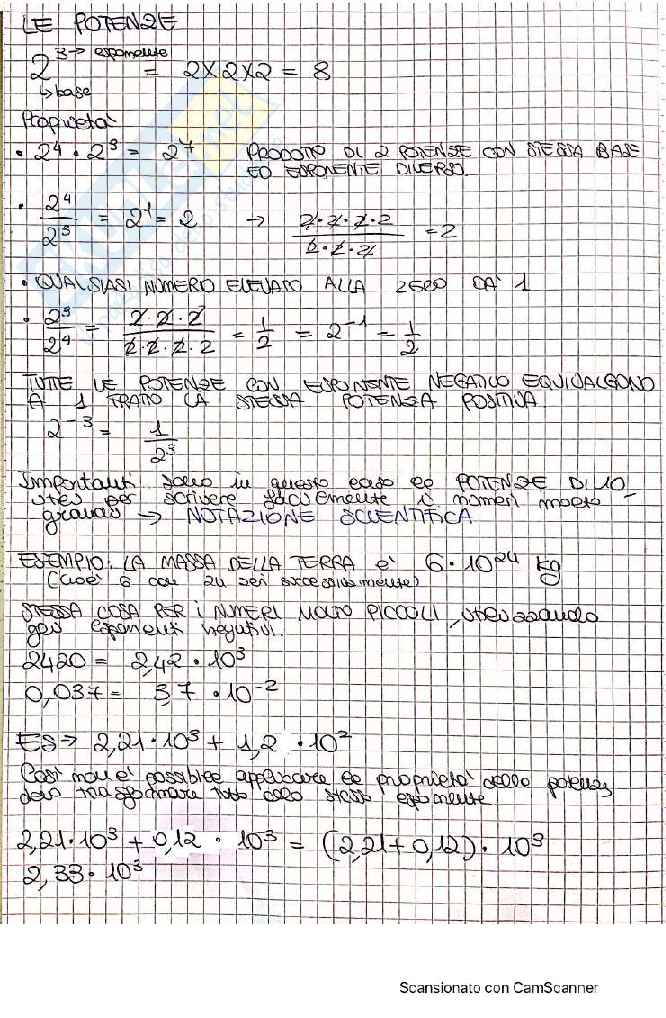 LE POTENZE
2³ → esponente = 2×2×2 = 8
↳ base
Proprietà
• 2⁴ · 2³ = 2⁷ PRODOTTO DI 2 POTENZE CON STESSA BASE
ED ESPONENTE DIVERSO.
• 2⁴/2³ = 2¹ = 2 → 2·2·2·2/2·2·2 = 2
• QUALSIASI NUMERO ELEVATO ALLA ZERO DA' 1
• 2³/2⁴ = 2·2·2/2·2·2·2 = 1/2 = 2⁻¹ = 1/2
TUTTE LE POTENZE CON ESPONENTE NEGATIVO EQUIVALGONO
A 1 FRATTO LA STESSA POTENZA POSITIVA
2⁻³ = 1/2³
Importanti sono in questo caso le POTENZE DI 10
utili per scrivere facilmente i numeri molto
grandi → NOTAZIONE SCIENTIFICA
ESEMPIO: LA MASSA DELLA TERRA e' 6·10²⁴ kg
(cioè 6 con 24 zeri successivamente)
STESSA COSA PER i NUMERI MOLTO PICCOLI, utilizzando
gli esponenti negativi.
2420 = 2,42 · 10³
0,037 = 3,7 · 10⁻²
ES → 2,21·10³ + 1,2 · 10²
Così non e' possibile applicare le proprietà delle potenze,
devi trasformare tutto allo stesso esponente
2,21·10³ + 0,12 · 10³ = (2,21+0,12)· 10³
2,33·10³
Scansionato con CamScanner